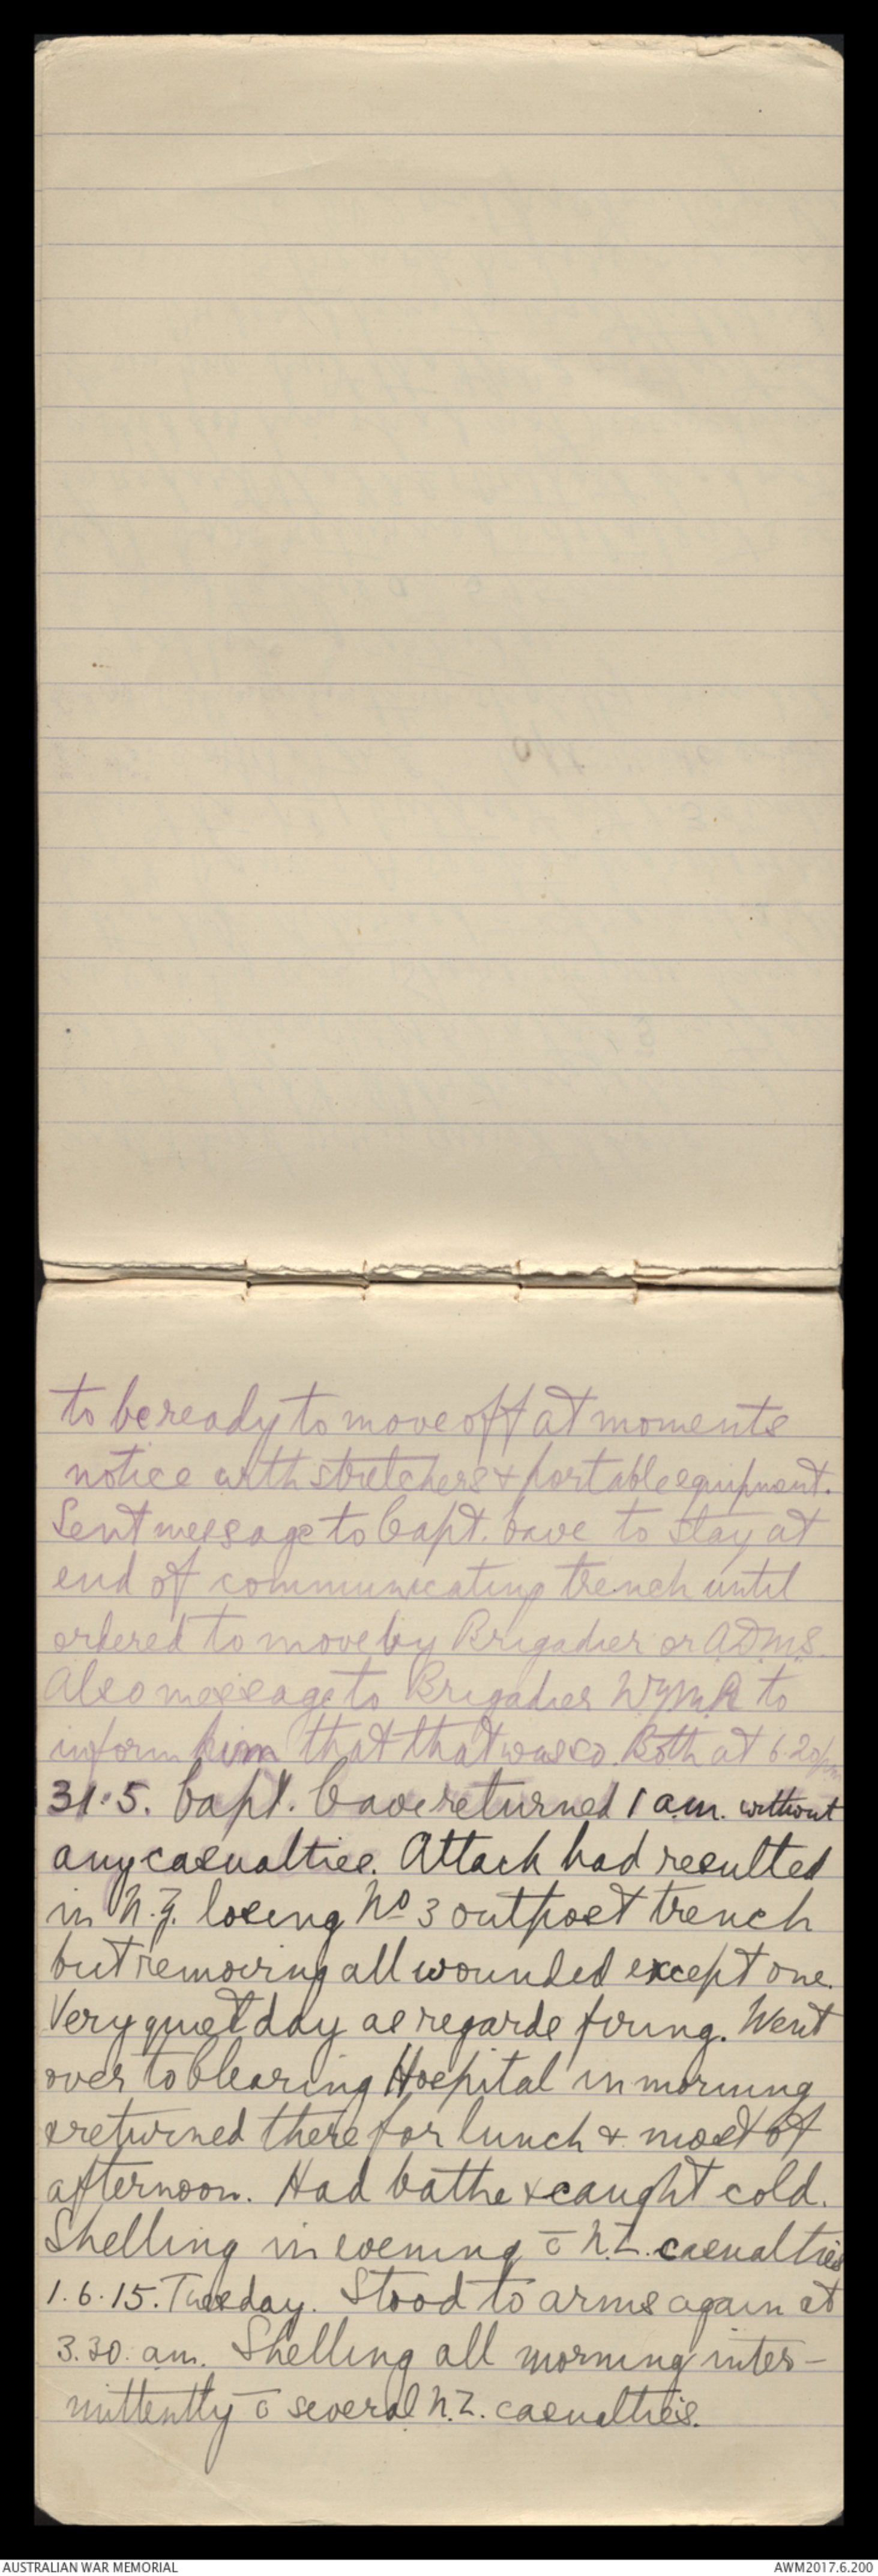 to be ready to move off at moments
notice with stretchers & portable equipment.
Sent message to Capt. Cave to stay at
end of communicating trench until
ordered to move by Brigadier or ADMS.
Also message to Brigadier NZMR to
inform him that that was so. Both at 6.20pm
31.5. Capt. Cave returned 1 am. without
any casualties. Attack had resulted
in N.Z. losing No 3 outpost trench
but removing all wounded except one.
Very quiet day as regards firing. Went
over to Clearing Hospital in morning
& returned there for lunch & most of
afternoon. Had bathe & caught cold.
Shelling in evening c̄ N.Z. casualties
1.6.15. Tuesday. Stood to arms again at
3.30. am. Shelling all morning inter-
mittently c̄ several N.Z. casualties.
AUSTRALIAN WAR MEMORIAL
AWM2017.6.200